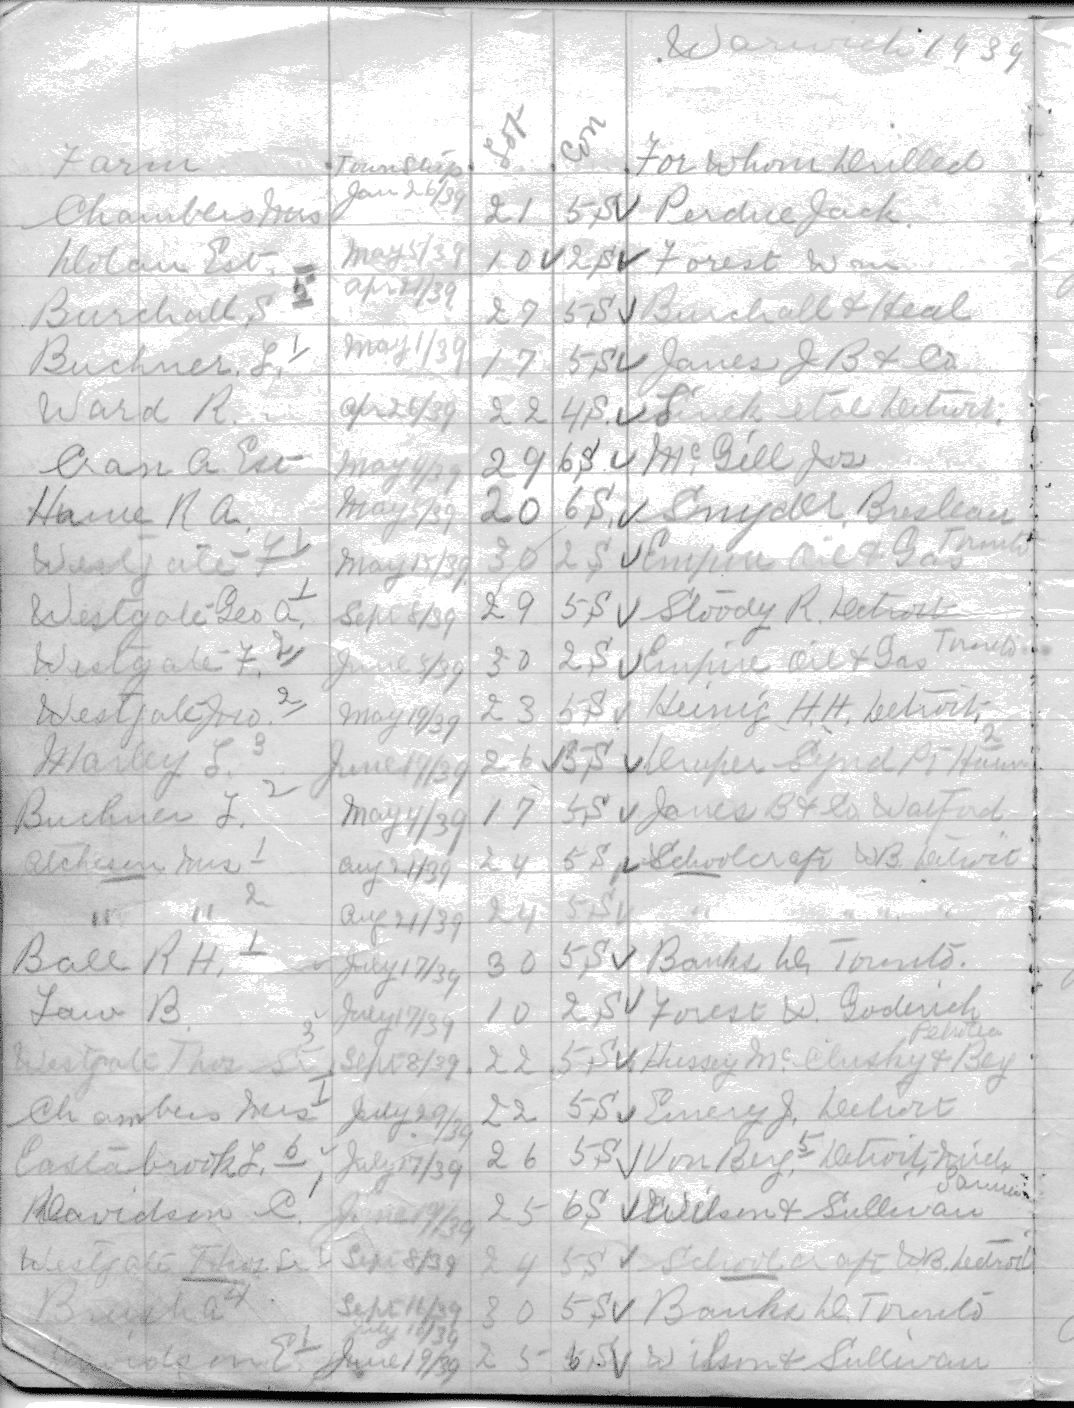 Warwick 1939
Farm Township Lot Con For Whom Drilled
Chambers Mrs Jan 26/39 21 5S ✓ Perdue Jack
Dolan Est. May 5/39 10 ✓ 2S ✓ Forest Wm
Burchall S 5 Apr 21/39 27 5S ✓ Burchall & Heal
Buchner L. 1 May 1/39 17 5S ✓ Janes J B & Co
Ward R. Apr 26/39 22 4S. ✓ et al Detroit.
Cran A Est May 4/39 29 6S. ✓ McGill Jos
Hame R A. May 5/39 20 6S. ✓ Snyder, Breslau
Westgate F 1 May 15/39 30 2S ✓ Empire Oil & Gas Toronto
Westgate Geo A. 1 Sept 8/39 29 5S ✓ Stoody R. Detroit
Westgate F. 2 June 5/39 30 2S ✓ Empire Oil & Gas Toronto
Westgate Jno. 2 May 19/39 23 5S ✓ Heinig H.H. Detroit.
Marley L. 3 June 19/39 26 ✓ 3S ✓ Draper Synd Pt Huron 2
Buchner L. 2 May 4/39 17 5S ✓ Janes B & Co Watford
Atcheson Mrs 1 Aug 21/39 24 5S ✓ Schoolcraft WB. Detroit
" " 2 Aug 21/39 24 5S ✓ " " " "
Ball R H. 1 July 17/39 30 5S ✓ Banks D. Toronto.
Law B. July 17/39 10 2S ✓ Forest W. Goderich
Westgate Thos Sr 3 Sept 8/39 22 5S ✓ Hussey McClusky & Bey Petrolea
Chambers Mrs 1 July 29/39 22 5S ✓ Emery J. Detroit
Eastabrook L. 6 July 17/39 26 5S ✓ Von Berg. 5 Detroit, Mich
Davidson C. 1 June 19/39 25 6S ✓ Wilson & Sullivan Sarnia
Westgate Thos Sr 1 Sept 8/39 24 5S ✓ Schoolcraft WB. Detroit
A 4 Sept 16/39 30 5S ✓ Banks D. Toronto
July 10/39
Davidson E. 1 June 19/39 25 6S ✓ Wilson & Sullivan